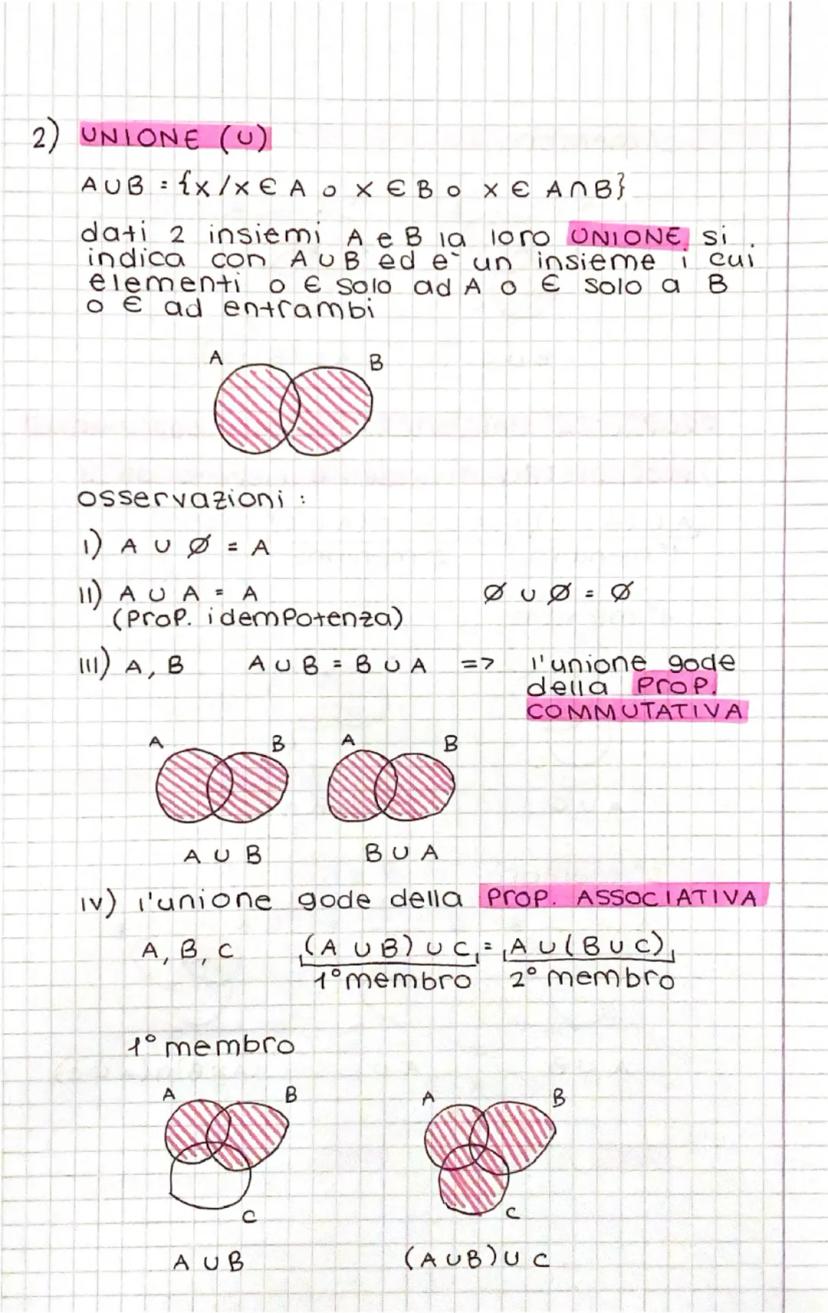 2) UNIONE (∪)
A∪B = {x/x ∈ A o x ∈ B o x ∈ A∩B}
dati 2 insiemi A e B la loro UNIONE si
indica con A∪B ed e` un insieme i cui
elementi o ∈ solo ad A o ∈ solo a B
o ∈ ad entrambi
A B
osservazioni :
I) A ∪ Ø = A
II) A ∪ A = A Ø ∪ Ø = Ø
(Prop. idempotenza)
III) A, B A ∪ B = B ∪ A => l'unione gode
della Prop.
COMMUTATIVA
A B A B
A ∪ B B ∪ A
IV) l'unione gode della Prop. ASSOCIATIVA
A, B, C (A ∪ B) ∪ C = A ∪ (B ∪ C)
1° membro 2° membro
1° membro
A B A B
C C
A ∪ B (A∪B)∪ C